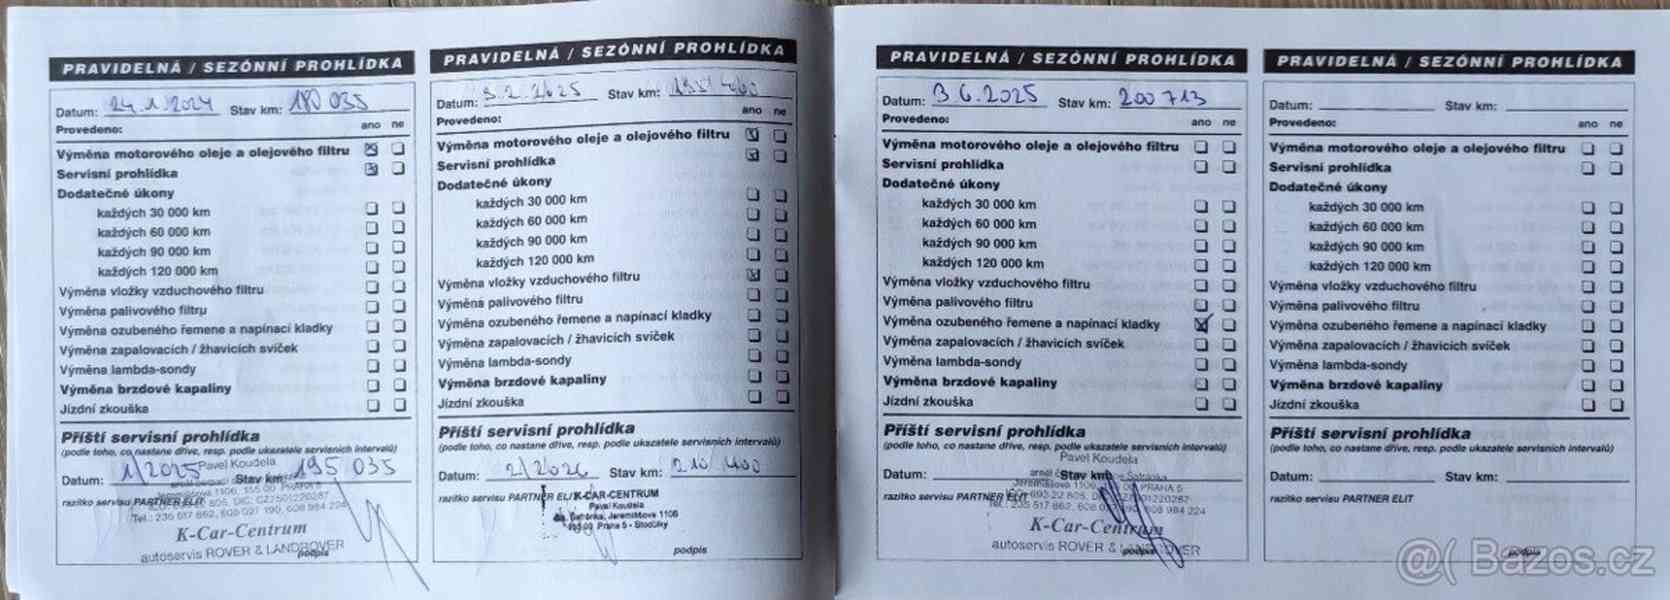 PRAVIDELNÁ / SEZÓNNÍ PROHLÍDKA
Datum: 24.1.2024 Stav km: 180 035
Provedeno: ano ne
Výměna motorového oleje a olejového filtru
Servisní prohlídka
Dodatečné úkony
každých 30 000 km
každých 60 000 km
každých 90 000 km
každých 120 000 km
Výměna vložky vzduchového filtru
Výměna palivového filtru
Výměna ozubeného řemene a napínací kladky
Výměna zapalovacích / žhavicích svíček
Výměna lambda-sondy
Výměna brzdové kapaliny
Jízdní zkouška
Příští servisní prohlídka
(podle toho, co nastane dříve, resp. podle ukazatele servisních intervalů)
Datum: 1/2025 Stav km: 195 035
Pavel Koudela
Jeremiášova 1106, 155 00 PRAHA 5
razítko servisu PARTNER ELIT
Tel.: 235 517 862, 608 021 190, 608 984 224
K-Car-Centrum
autoservis ROVER & LANDROVER
podpis
PRAVIDELNÁ / SEZÓNNÍ PROHLÍDKA
Datum: 3.2.2025 Stav km: 195 400
Provedeno: ano ne
Výměna motorového oleje a olejového filtru
Servisní prohlídka
Dodatečné úkony
každých 30 000 km
každých 60 000 km
každých 90 000 km
každých 120 000 km
Výměna vložky vzduchového filtru
Výměna palivového filtru
Výměna ozubeného řemene a napínací kladky
Výměna zapalovacích / žhavicích svíček
Výměna lambda-sondy
Výměna brzdové kapaliny
Jízdní zkouška
Příští servisní prohlídka
(podle toho, co nastane dříve, resp. podle ukazatele servisních intervalů)
Datum: 2/2026 Stav km: 210 400
razítko servisu PARTNER ELIT
K-CAR-CENTRUM
Pavel Koudela
Jeremiášova 1106
Praha 5 - Stodůlky
podpis
PRAVIDELNÁ / SEZÓNNÍ PROHLÍDKA
Datum: 3 6.2025 Stav km: 200 713
Provedeno: ano ne
Výměna motorového oleje a olejového filtru
Servisní prohlídka
Dodatečné úkony
každých 30 000 km
každých 60 000 km
každých 90 000 km
každých 120 000 km
Výměna vložky vzduchového filtru
Výměna palivového filtru
Výměna ozubeného řemene a napínací kladky
Výměna zapalovacích / žhavicích svíček
Výměna lambda-sondy
Výměna brzdové kapaliny
Jízdní zkouška
Příští servisní prohlídka
(podle toho, co nastane dříve, resp. podle ukazatele servisních intervalů)
Pavel Koudela
Datum: Stav km:
razítko servisu PARTNER ELIT
Tel.: 235 517 862, 608 984 224
K-Car-Centrum
autoservis ROVER & LANDROVER
podpis
PRAVIDELNÁ / SEZÓNNÍ PROHLÍDKA
Datum: Stav km:
Provedeno: ano ne
Výměna motorového oleje a olejového filtru
Servisní prohlídka
Dodatečné úkony
každých 30 000 km
každých 60 000 km
každých 90 000 km
každých 120 000 km
Výměna vložky vzduchového filtru
Výměna palivového filtru
Výměna ozubeného řemene a napínací kladky
Výměna zapalovacích / žhavicích svíček
Výměna lambda-sondy
Výměna brzdové kapaliny
Jízdní zkouška
Příští servisní prohlídka
(podle toho, co nastane dříve, resp. podle ukazatele servisních intervalů)
Datum: Stav km:
razítko servisu PARTNER ELIT
podpis
Bazos.cz